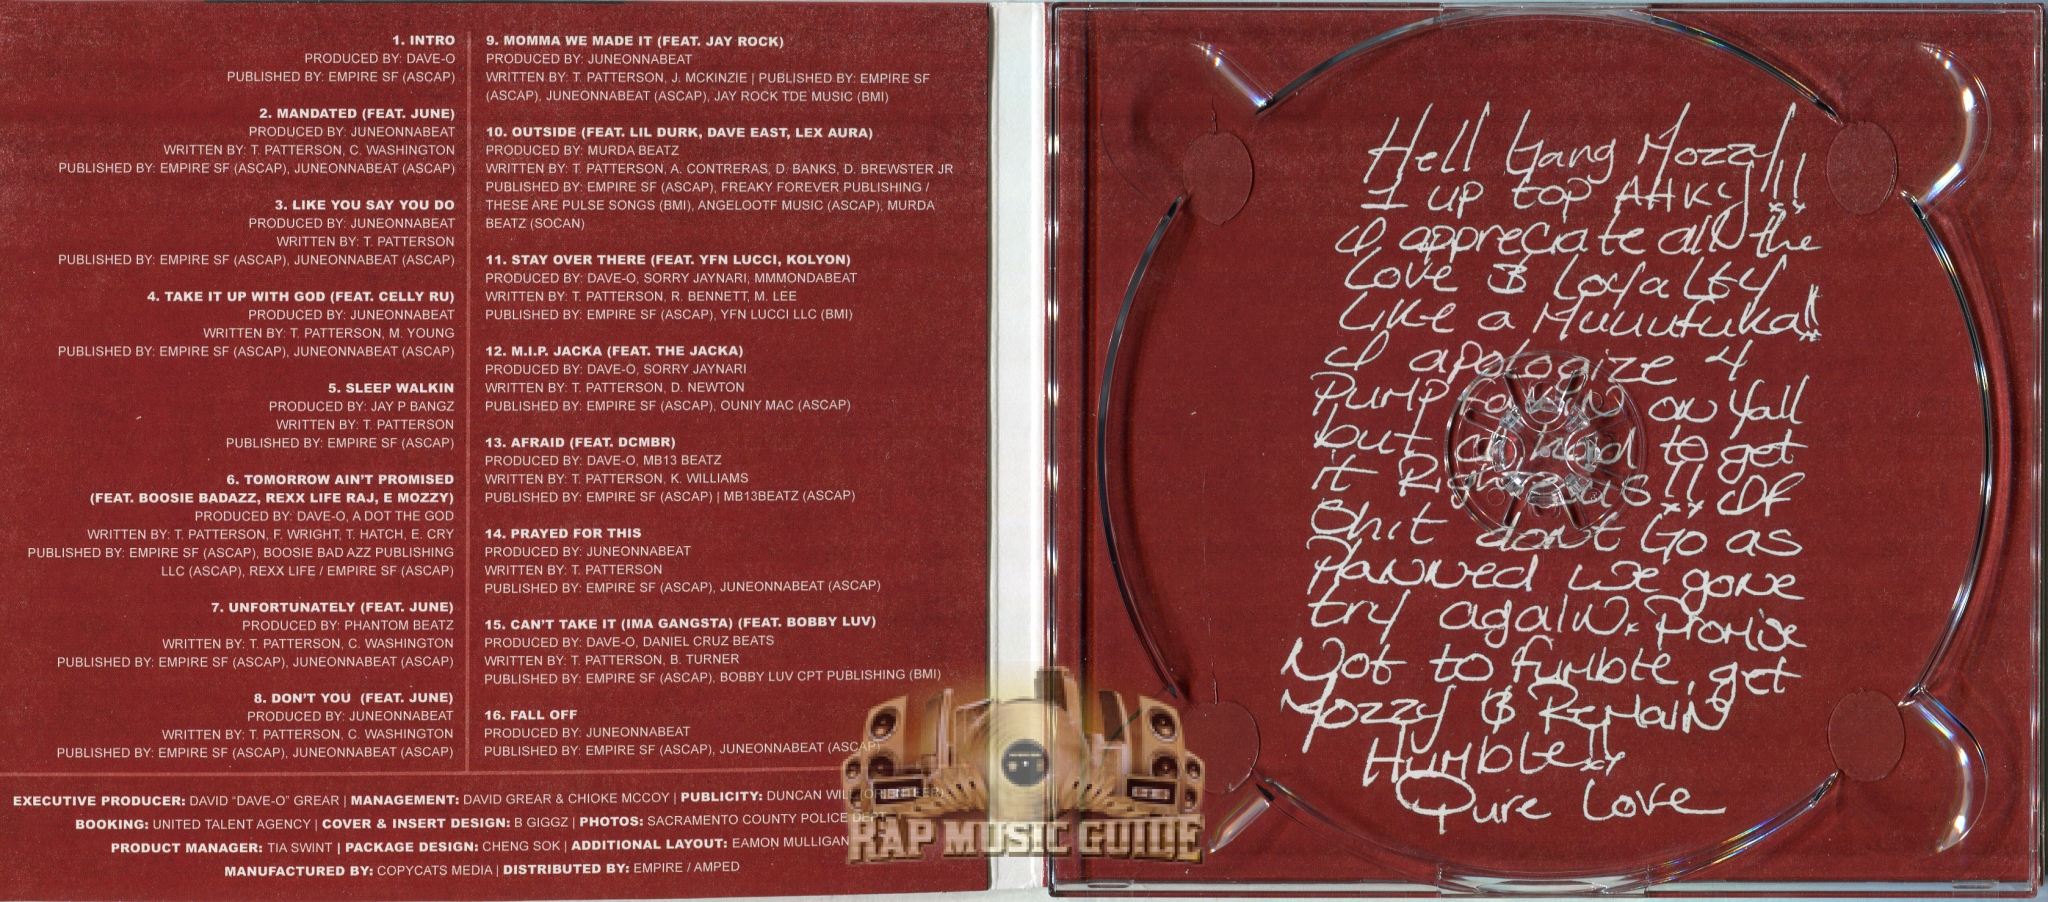 1. INTRO
PRODUCED BY: DAVE-O
PUBLISHED BY: EMPIRE SF (ASCAP)
2. MANDATED (FEAT. JUNE)
PRODUCED BY: JUNEONNABEAT
WRITTEN BY: T. PATTERSON, C. WASHINGTON
PUBLISHED BY: EMPIRE SF (ASCAP), JUNEONNABEAT (ASCAP)
3. LIKE YOU SAY YOU DO
PRODUCED BY: JUNEONNABEAT
WRITTEN BY: T. PATTERSON
PUBLISHED BY: EMPIRE SF (ASCAP), JUNEONNABEAT (ASCAP)
4. TAKE IT UP WITH GOD (FEAT. CELLY RU)
PRODUCED BY: JUNEONNABEAT
WRITTEN BY: T. PATTERSON, M. YOUNG
PUBLISHED BY: EMPIRE SF (ASCAP), JUNEONNABEAT (ASCAP)
5. SLEEP WALKIN
PRODUCED BY: JAY P BANGZ
WRITTEN BY: T. PATTERSON
PUBLISHED BY: EMPIRE SF (ASCAP)
6. TOMORROW AIN'T PROMISED
(FEAT. BOOSIE BADAZZ, REXX LIFE RAJ, E MOZZY)
PRODUCED BY: DAVE-O, A DOT THE GOD
WRITTEN BY: T. PATTERSON, F. WRIGHT, T. HATCH, E. CRY
PUBLISHED BY: EMPIRE SF (ASCAP), BOOSIE BAD AZZ PUBLISHING
LLC (ASCAP), REXX LIFE / EMPIRE SF (ASCAP)
7. UNFORTUNATELY (FEAT. JUNE)
PRODUCED BY: PHANTOM BEATZ
WRITTEN BY: T. PATTERSON, C. WASHINGTON
PUBLISHED BY: EMPIRE SF (ASCAP), JUNEONNABEAT (ASCAP)
8. DON'T YOU (FEAT. JUNE)
PRODUCED BY: JUNEONNABEAT
WRITTEN BY: T. PATTERSON, C. WASHINGTON
PUBLISHED BY: EMPIRE SF (ASCAP), JUNEONNABEAT (ASCAP)
9. MOMMA WE MADE IT (FEAT. JAY ROCK)
PRODUCED BY: JUNEONNABEAT
WRITTEN BY: T. PATTERSON, J. MCKINZIE | PUBLISHED BY: EMPIRE SF
(ASCAP), JUNEONNABEAT (ASCAP), JAY ROCK TDE MUSIC (BMI)
10. OUTSIDE (FEAT. LIL DURK, DAVE EAST, LEX AURA)
PRODUCED BY: MURDA BEATZ
WRITTEN BY: T. PATTERSON, A. CONTRERAS, D. BANKS, D. BREWSTER JR
PUBLISHED BY: EMPIRE SF (ASCAP), FREAKY FOREVER PUBLISHING /
THESE ARE PULSE SONGS (BMI), ANGELOOTF MUSIC (ASCAP), MURDA
BEATZ (SOCAN)
11. STAY OVER THERE (FEAT. YFN LUCCI, KOLYON)
PRODUCED BY: DAVE-O, SORRY JAYNARI, MMMONDABEAT
WRITTEN BY: T. PATTERSON, R. BENNETT, M. LEE
PUBLISHED BY: EMPIRE SF (ASCAP), YFN LUCCI LLC (BMI)
12. M.I.P. JACKA (FEAT. THE JACKA)
PRODUCED BY: DAVE-O, SORRY JAYNARI
WRITTEN BY: T. PATTERSON, D. NEWTON
PUBLISHED BY: EMPIRE SF (ASCAP), OUNIY MAC (ASCAP)
13. AFRAID (FEAT. DCMBR)
PRODUCED BY: DAVE-O, MB13 BEATZ
WRITTEN BY: T. PATTERSON, K. WILLIAMS
PUBLISHED BY: EMPIRE SF (ASCAP) | MB13BEATZ (ASCAP)
14. PRAYED FOR THIS
PRODUCED BY: JUNEONNABEAT
WRITTEN BY: T. PATTERSON
PUBLISHED BY: EMPIRE SF (ASCAP), JUNEONNABEAT (ASCAP)
15. CAN'T TAKE IT (IMA GANGSTA) (FEAT. BOBBY LUV)
PRODUCED BY: DAVE-O, DANIEL CRUZ BEATS
WRITTEN BY: T. PATTERSON, B. TURNER
PUBLISHED BY: EMPIRE SF (ASCAP), BOBBY LUV CPT PUBLISHING (BMI)
16. FALL OFF
PRODUCED BY: JUNEONNABEAT
PUBLISHED BY: EMPIRE SF (ASCAP), JUNEONNABEAT (ASCAP)
EXECUTIVE PRODUCER: DAVID "DAVE-O" GREAR | MANAGEMENT: DAVID GREAR & CHIOKE MCCOY | PUBLICITY: DUNCAN WILL
BOOKING: UNITED TALENT AGENCY | COVER & INSERT DESIGN: B GIGGZ | PHOTOS: SACRAMENTO COUNTY POLICE DEPT
PRODUCT MANAGER: TIA SWINT | PACKAGE DESIGN: CHENG SOK | ADDITIONAL LAYOUT: EAMON MULLIGAN
MANUFACTURED BY: COPYCATS MEDIA | DISTRIBUTED BY: EMPIRE / AMPED
Hell Gang Mozzy!!
1 up top AHKC!!
I appreciate all the
Love & Loyalty
Like a Muuufuka!!
I apologize 4
Pump on yall
but to get
it !! If
Shit don't Go as
Planned we gone
try again. Promise
Not to fumble, get
Mozzy & Remain
Humble!!
Pure Love
RAP MUSIC GUIDE